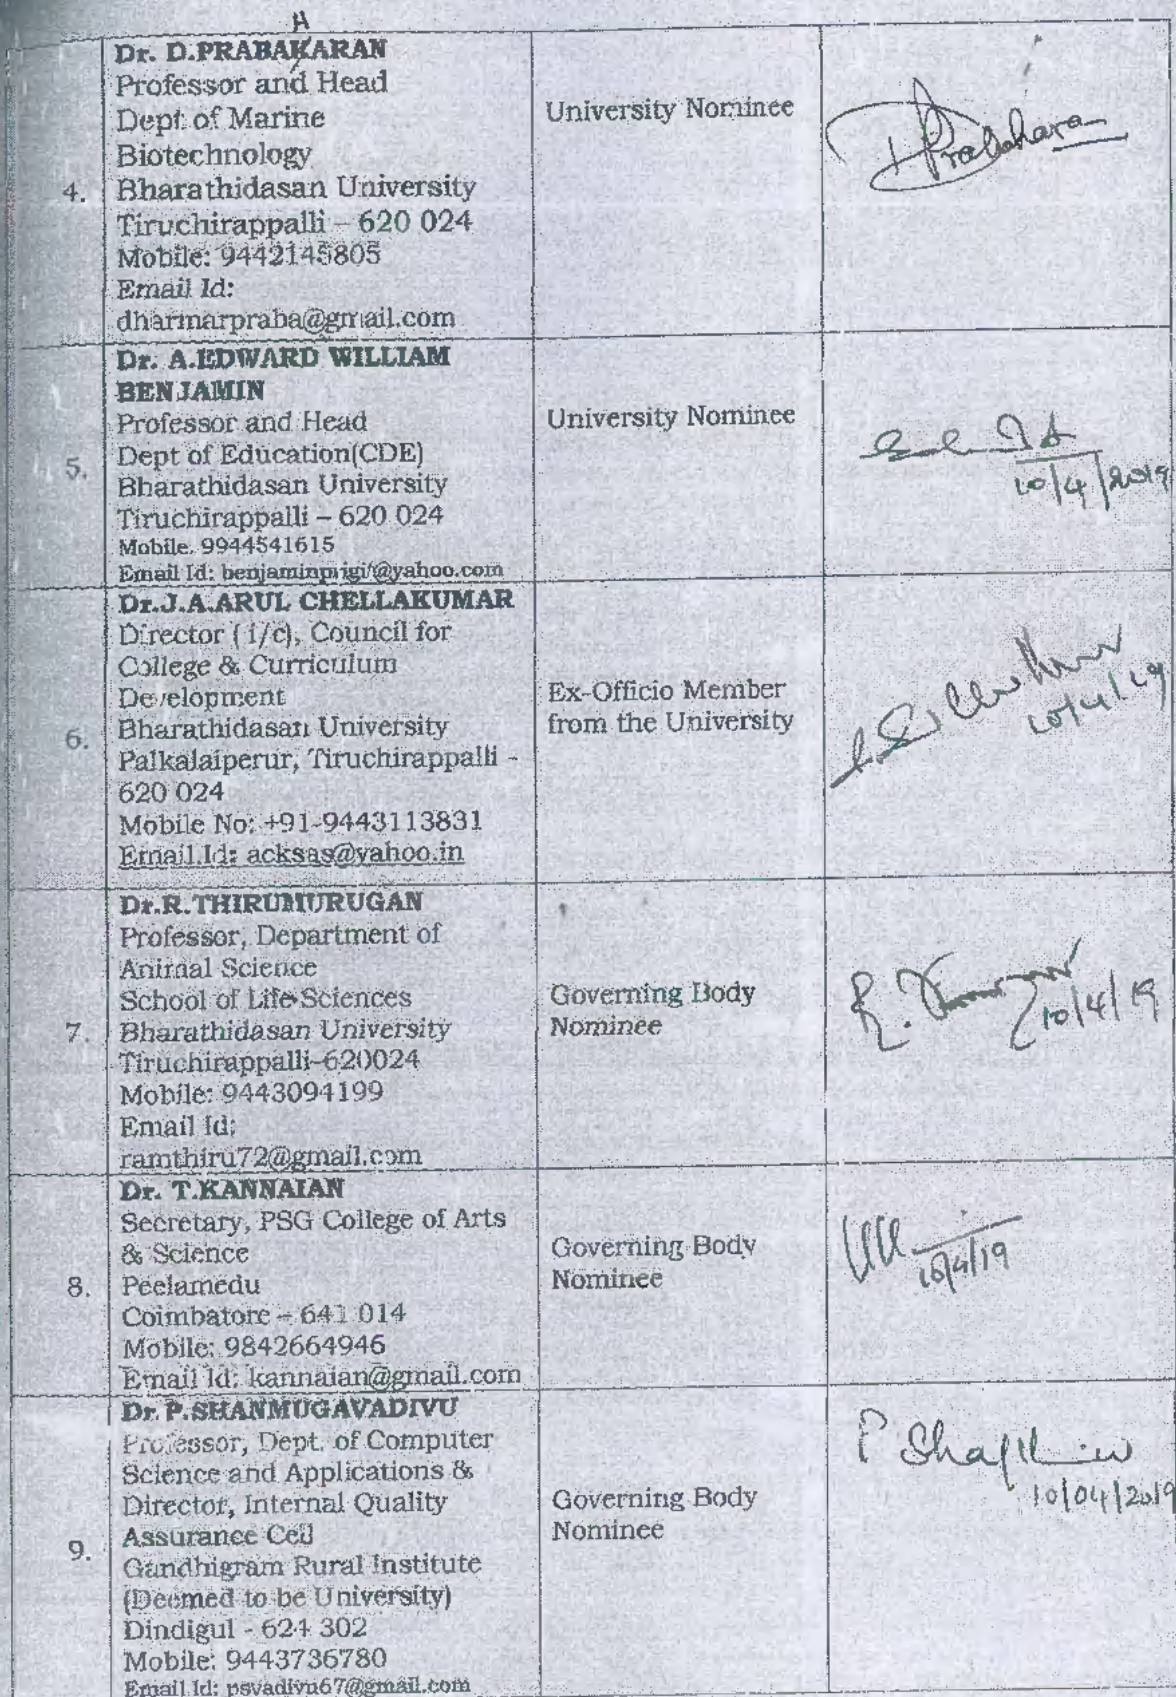 H
Dr. D.PRABAKARAN
Professor and Head
Dept of Marine
Biotechnology
4.
Bharathidasan University
Tiruchirappalli – 620 024
Mobile: 9442145805
Email Id:
dharmarpraba@gmail.com
University Nominee
Prabahara
Dr. A.EDWARD WILLIAM
BENJAMIN
Professor and Head
Dept of Education(CDE)
5.
Bharathidasan University
Tiruchirappalli – 620 024
Mobile. 9944541615
Email Id: @yahoo.com
University Nominee
10/4/2019
Dr.J.A.ARUL CHELLAKUMAR
Director ( i/c), Council for
College & Curriculum
Development
6.
Bharathidasan University
Palkalaiperur, Tiruchirappalli -
620 024
Mobile No: +91-9443113831
Email.Id: acksas@yahoo.in
Ex-Officio Member
from the University
10/4/19
Dr.R.THIRUMURUGAN
Professor, Department of
Animal Science
School of Life Sciences
7.
Bharathidasan University
Tiruchirappalli-620024
Mobile: 9443094199
Email Id:
ramthiru72@gmail.com
Governing Body
Nominee
R.
10/4/19
Dr. T.KANNAIAN
Secretary, PSG College of Arts
& Science
8.
Peelamedu
Coimbatore – 641 014
Mobile: 9842664946
Email Id: kannaian@gmail.com
Governing Body
Nominee
10/4/19
Dr.P.SHANMUGAVADIVU
Professor, Dept. of Computer
Science and Applications &
Director, Internal Quality
Assurance Cell
9.
Gandhigram Rural Institute
(Deemed to be University)
Dindigul - 624 302
Mobile: 9443736780
Email Id: psvadivu67@gmail.com
Governing Body
Nominee
P
10/04/2019